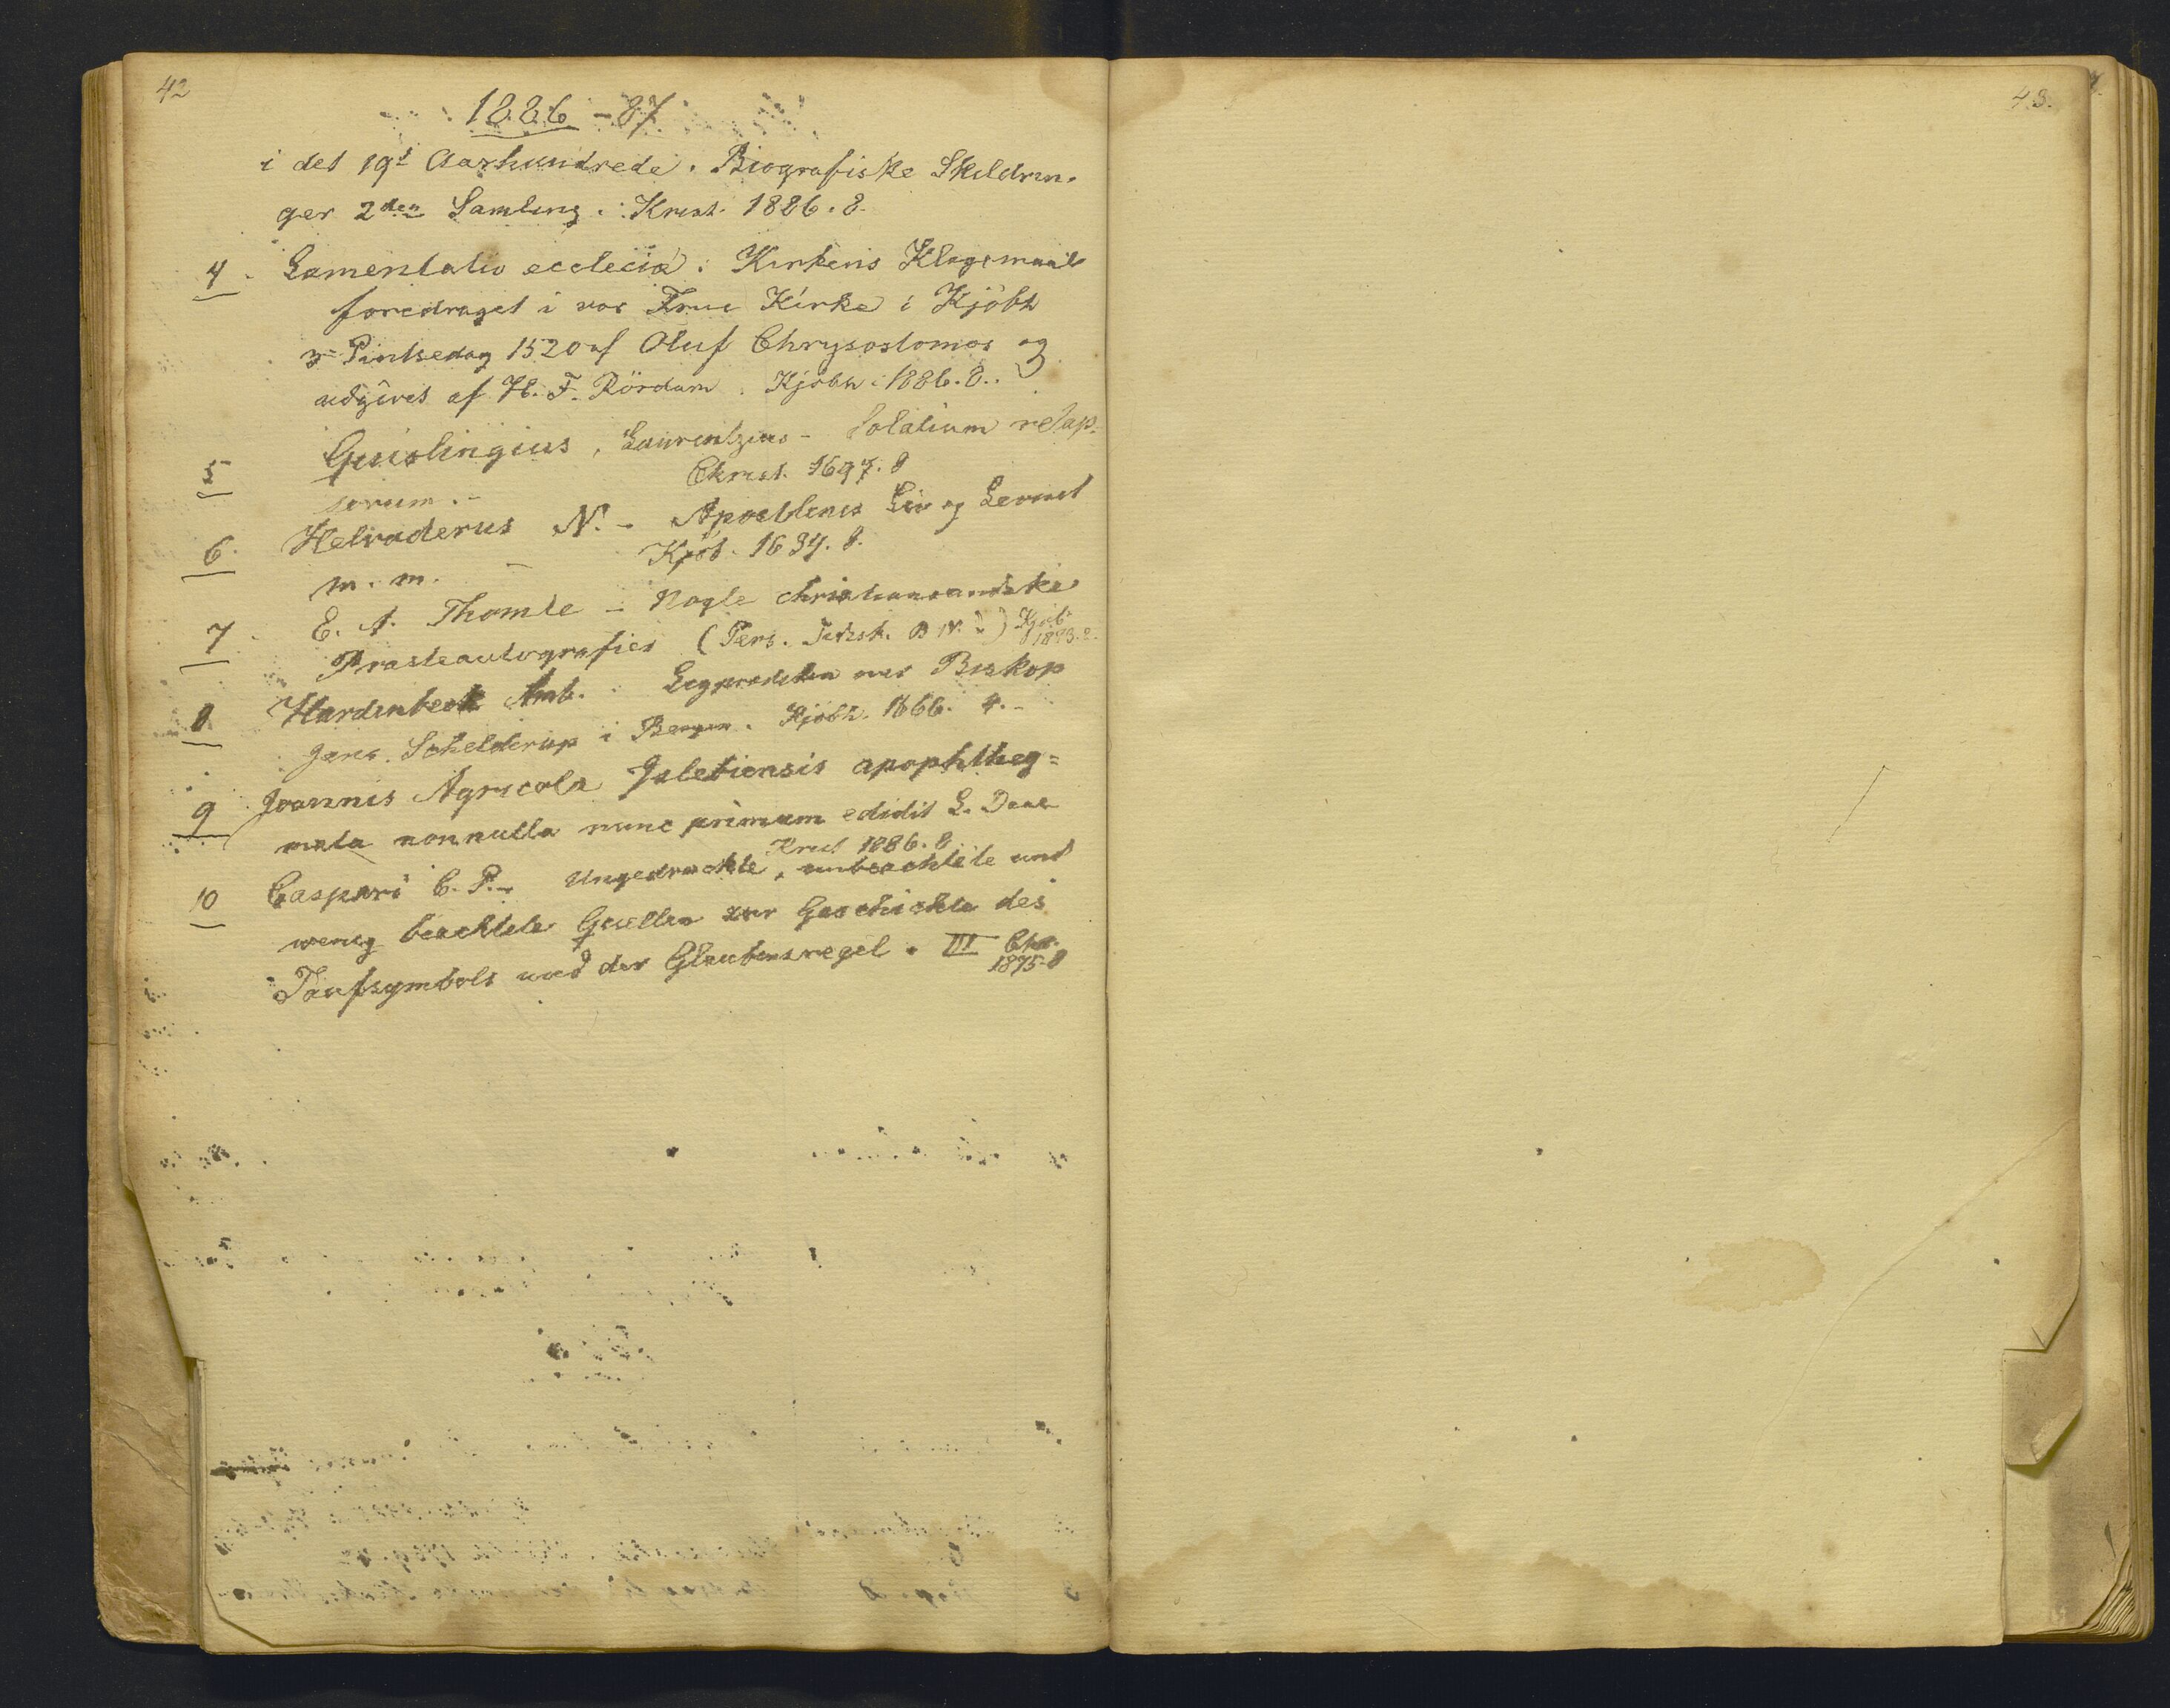 42
1886-87
i det 19d Aarhundrede. Biografiske Skildrin-
ger 2den Samling. Krist. 1886. 8.
4. Lamentatio ecclecia: Kirkens Klagemaal
foredraget i vor Frue Kirke i Kjöbh
3 Pintsedag 1520 af Oluf Chrysostomos og
udgives af H. F. Rördam. Kjöbh. 1886. 8.
5 Quislingius, Laurentzius - Solatium relap-
sorum. - Christ. 1697. 8
6. Helvaderus N. - Apostlenes Liv og Levned
m. m. - Kjöb. 1634. 8.
7. E. A. Thomle - Nogle christianssandske
Præsteautografier (Pers. Tidssk. B IV. ) Kjöb
1883. 8.
8 Hardenbeck Amb. Ligprædiken over Biskop
Jens Schelderup i Bergen. Kjöbh. 1666. 4. -
9 Joannis Agricola Islebiensis apophtheg=
mata nonnulla nunc primum edidit L. Daae
Krist 1886. 8
10 Caspari C. P. - Ungedruckte, unbeachtete und
wenig beachtete Quellen zur Geschichte des
Taufsymbols und der Glaubensregel. III Chr.
1875. 8
43.